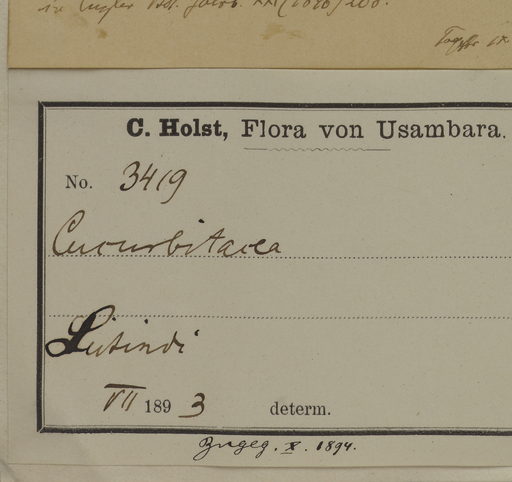 in Engler Bot. Jahrb.
C. Holst, Flora von Usambara.
No. 3419
Cucurbitacea
Lutindi
VII 1893 determ.
Zugeg. X. 1894.